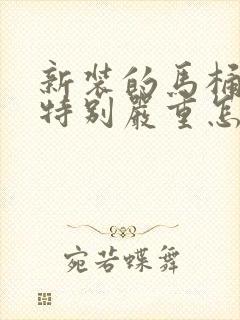 新装的马桶
特别严重怎
宛若蝶舞